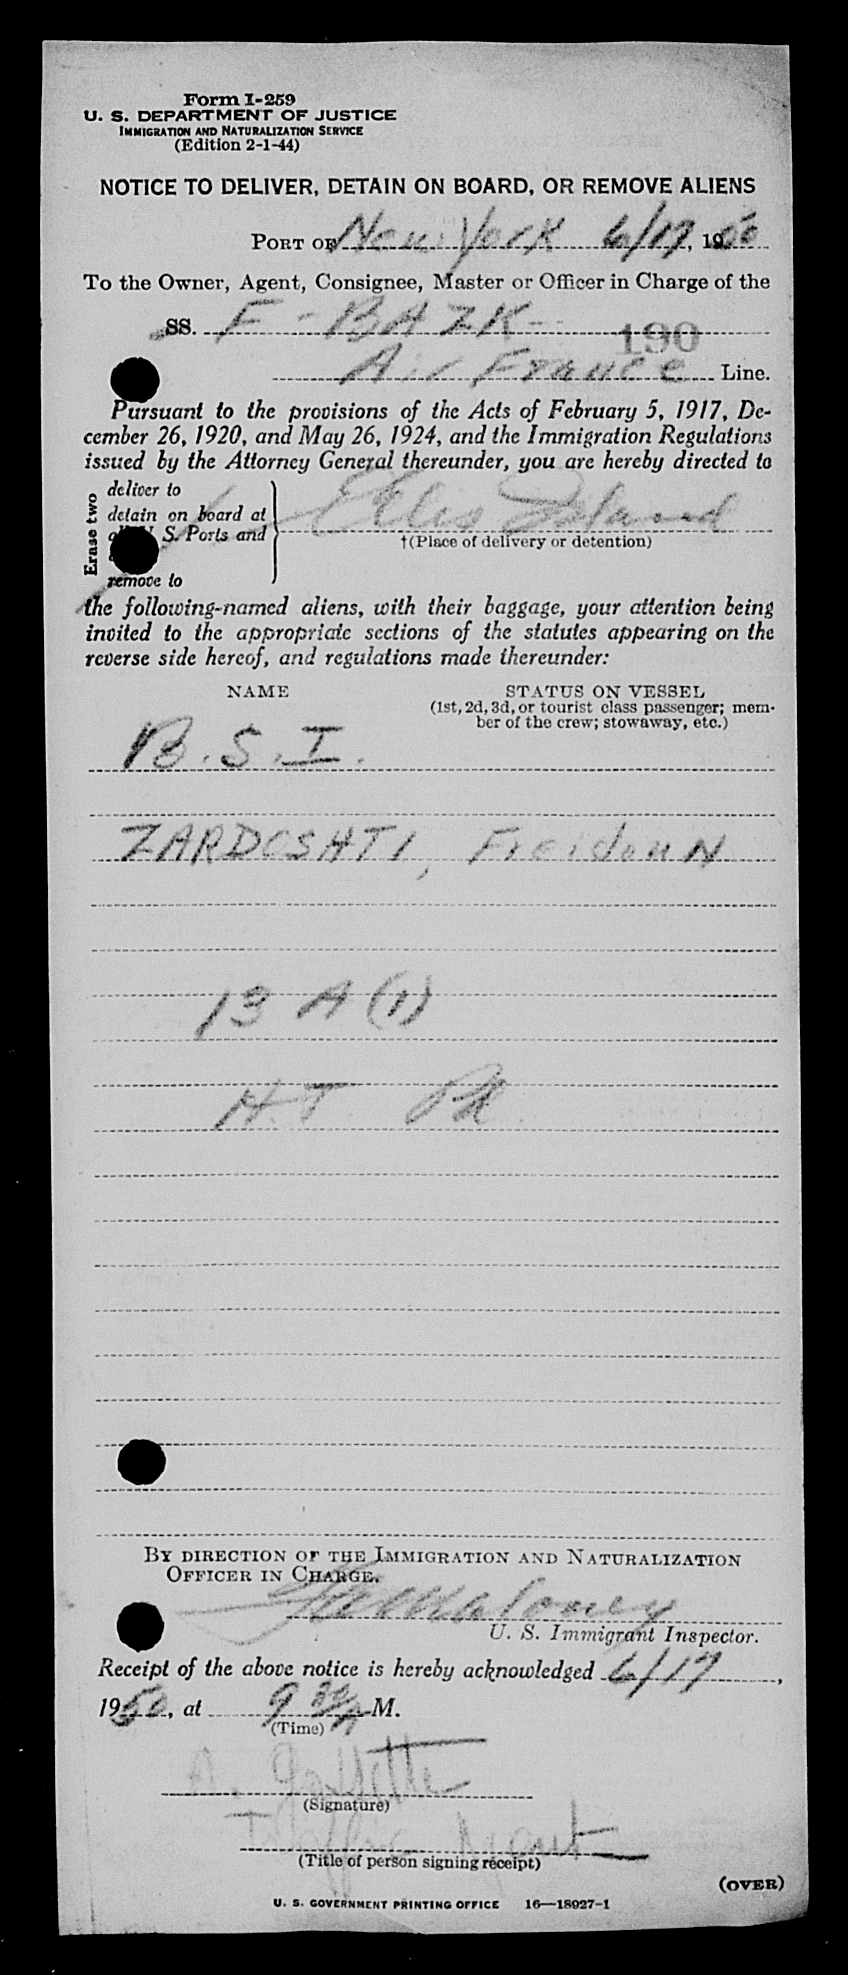 Form I-259
U. S. DEPARTMENT OF JUSTICE
IMMIGRATION AND NATURALIZATION SERVICE
(Edition 2-1-44)
NOTICE TO DELIVER, DETAIN ON BOARD, OR REMOVE ALIENS
PORT OF New York 6/17, 1950
To the Owner, Agent, Consignee, Master or Officer in Charge of the
SS. F-BAZK-
190
Air France Line.
Pursuant to the provisions of the Acts of February 5, 1917, De-
cember 26, 1920, and May 26, 1924, and the Immigration Regulations
issued by the Attorney General thereunder, you are hereby directed to
Erase two
deliver to
detain on board at
S. Ports and
remove to
Ellis Island
†(Place of delivery or detention)
the following-named aliens, with their baggage, your attention being
invited to the appropriate sections of the statutes appearing on the
reverse side hereof, and regulations made thereunder:
NAME
STATUS ON VESSEL
(1st, 2d, 3d, or tourist class passenger; mem-
ber of the crew; stowaway, etc.)
B.S.I.
ZARDOSHTI, FreidouN
13 A (1)
H.T.
BY DIRECTION OF THE IMMIGRATION AND NATURALIZATION
OFFICER IN CHARGE.
Maloney
U. S. Immigrant Inspector.
Receipt of the above notice is hereby acknowledged 6/17,
1950, at 9 M.
(Time)
(Signature)
Traffic Agent
(Title of person signing receipt)
(OVER)
U. S. GOVERNMENT PRINTING OFFICE 16—18927-1